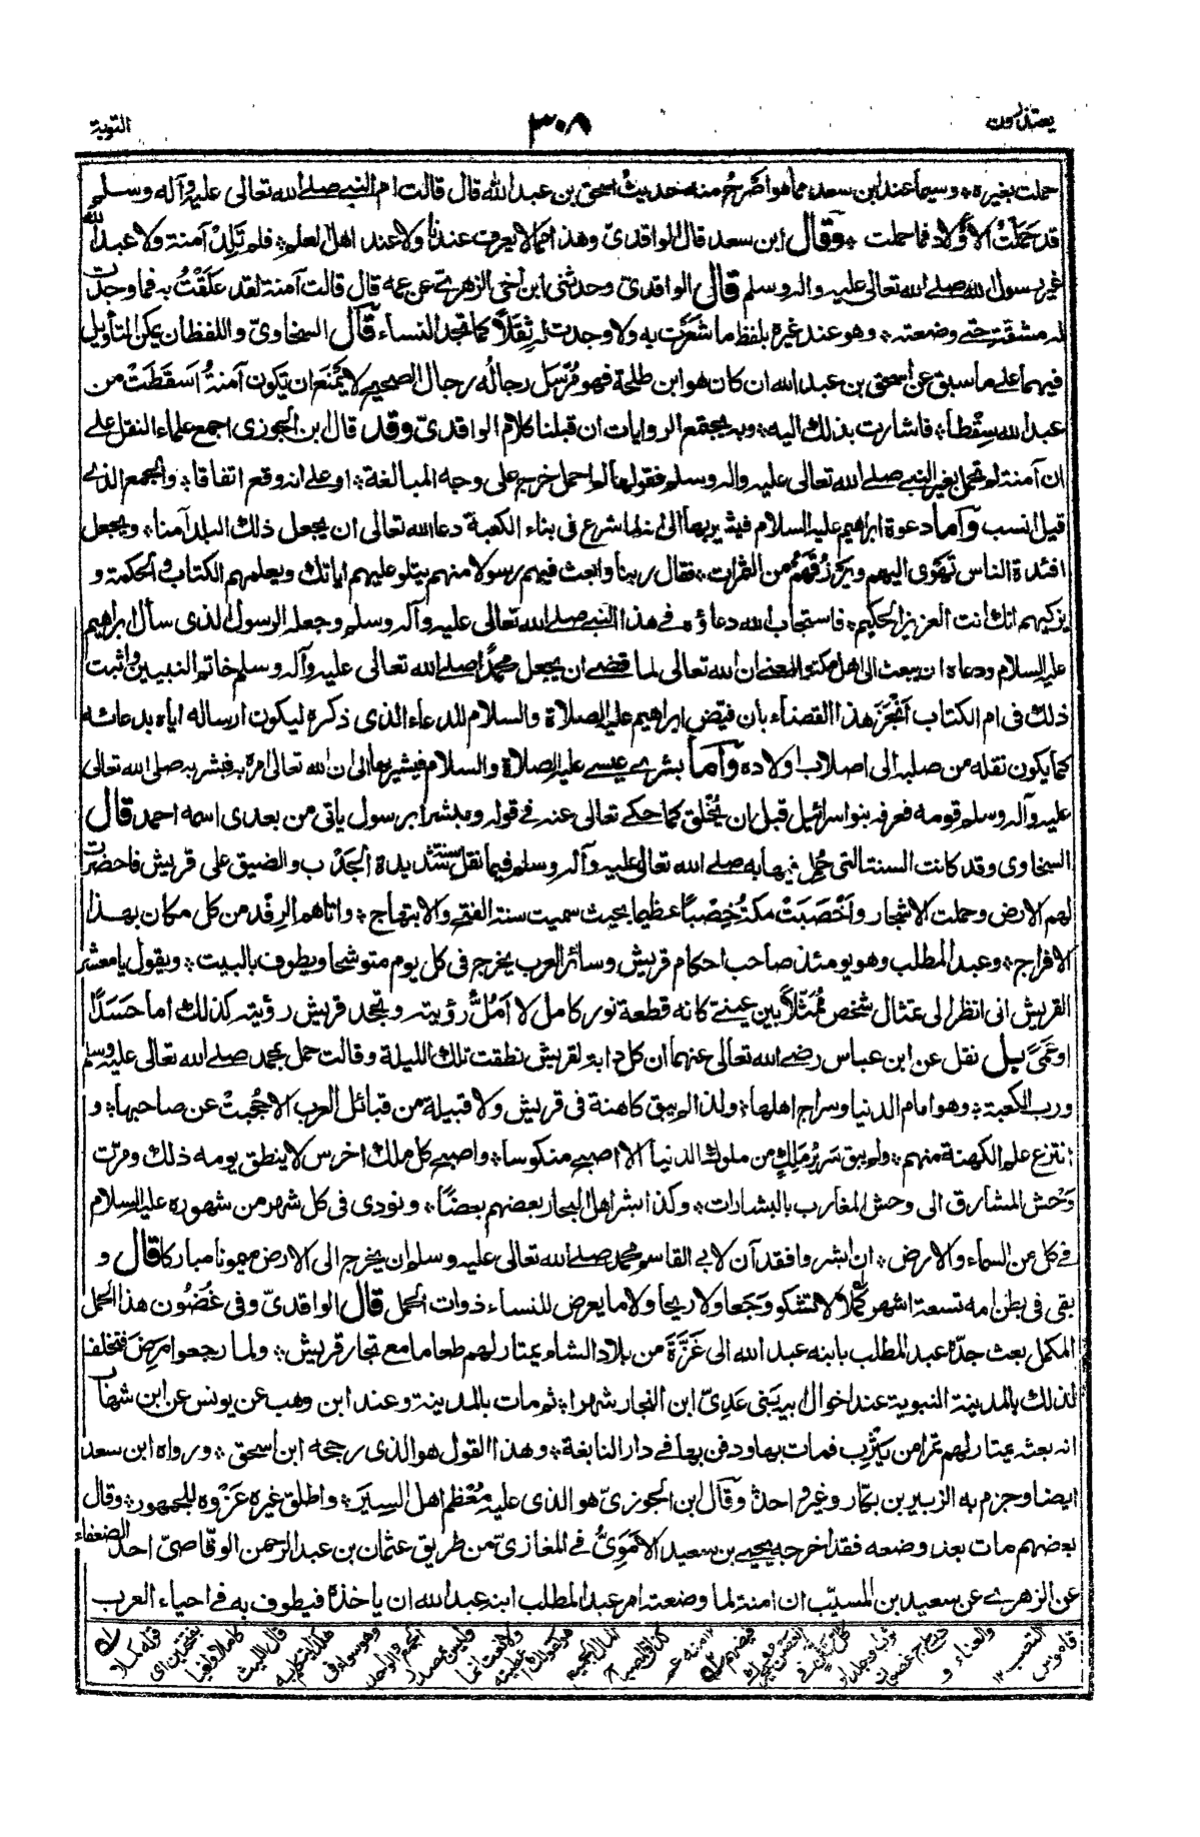 يعتذرون
٣٠٨
التوبة
حملت بغيره وسيما عند ابن سعد مما هو أصرح منه حديث اسحق بن عبد الله قال قالت ام النبي صلى الله تعالى عليه وآله وسلم
قد حَمَلْتُ الأَوْلاد فما حملت وقال ابن سعد قال الواقدىّ وهذا مما لا يعرف عندنا ولا عند اهل العلم فلم تَلِدْ آمنة ولا عبد الله
غير رسول الله صلى الله تعالى عليه واله وسلم قال الواقدىّ وحدثنى ابن اخى الزهرى عن عمه قال قالت آمنة لقد عَلَقْتُ به فما وجدت
له مشقة حتى وضعته وهو عند غيره بلفظ ما شعَرَت به ولا وجدت له ثِقَلًا كما تجد النساء قال السخاوىّ واللفظان يمكن التأويل
فيهما على ما سبق عن اسحق بن عبد الله ان كان هو ابن طلحة فهو مُرْسَل رجالُه رجال الصحيح لا يمْنَع ان تكون آمنةُ اَسقَطَتْ من
عبد الله سِقْطا فاشارت بذلك اليه وبه يجتمع الروايات ان قبلنا كلام الواقدىّ وقد قال ابن الجوزى اجمع علماء النقل على
ان آمنة لم تحمل بغير النبي صلى الله تعالى عليه واله وسلم فقولها لم احمل خرج على وجه المبالغة او على انه وقع اتفاقا والجمع الذى
قيل انسب وَاَما دعوة ابراهيم عليه السلام فيشير بها الى انه لما شرع فى بناء الكعبة دعا الله تعالى ان يجعل ذلك البلد آمنا ويجعل
افئدة الناس تَهْوَى اليهم ويَرْزُقَهُمْ من الثمرات فقال ربنا وابعث فيهم رسولا منهم يتلو عليهم اياتك ويعلمهم الكتاب والحكمة و
يزكيهم انك انت العزيز الحكيم فاستجاب الله دعاؤه فى هذا النبي صلى الله تعالى عليه وآله وسلم وجعله الرسول الذى سأل ابراهيم
عليه السلام ودعاه ان يبعث الى اهل مكة والمعنى ان الله تعالى لما قضى ان يجعل محمدًا صلى الله تعالى عليه وآله وسلم خاتم النبيين واثبت
ذلك فى ام الكتاب اَنْجَزَ هذا القضاء بان قيّض ابراهيم عليه الصلاة والسلام للدعاء الذى ذكره ليكون ارساله اياه بدعائه
كما يكون نقله من صلبه الى اصلاب اولاده وَاَما بشرى عيسى عليه الصلاة والسلام فيشير بها الى ان الله تعالى امره فبشر به صلى الله تعالى
عليه وآله وسلم قومه فعرفه بنو اسرائيل قبل ان يُخْلق كما حكى تعالى عنه فى قوله ومبشرا برسول ياتى من بعدى اسمه احمد قال
السخاوى وقد كانت السنة التى حُمِل فيها به صلى الله تعالى عليه وآله وسلم فيما نقل سنة شديدة الجَدْب والضيق على قريش فاخضرت
لهم الارض وحملت الاشجار واَخْصَبَتْ مكة خِصْبًا عظيما بحيث سميت سنة الفتح والابتهاج واتاهم الرِفْد من كل مكان بهذا
الافراج وعبد المطلب وهو يومئذ صاحب احكام قريش وسائر العرب يخرج فى كل يوم متوشحا ويطوف بالبيت ويقول يا معشر
القريش انى انظر الى تمثال شخص مُمَثَّلًا بين عينى كانه قطعة نور كامل لا اَمَلُّ رؤيته وتجحد قريش رؤيته كذلك اما حَسَدًا
او عَمًى بل نقل عن ابن عباس رضى الله تعالى عنهما ان كل دابة لقريش نطقت تلك الليلة وقالت حمل بمحمد صلى الله تعالى عليه وسلم
ورب الكعبة وهو امام الدنيا وسراج اهلها ولم يبق كاهنة فى قريش ولا قبيلة من قبائل العرب الا حُجبتْ عن صاحبها و
انتزع علم الكهنة منهم ولم يبق سَرِيرُ مَلِك من ملوك الدنيا الا اصبح منكوسا واصبح كل ملك اخرس لا ينطق يومه ذلك ومرّت
وَحْش المشارق الى وحش المغارب بالبشارات وكذا بشر اهل البحار بعضهم بعضًا ونودى فى كل شهر من شهوره عليه السلام
فى كل من السماء والارض ان ابشروا فقد آن لابى القاسم محمد صلى الله تعالى عليه وسلم ان يخرج الى الارض ميمونا مباركا قال و
بقى فى بطن امه تسعة اشهر كُمَّلًا لا تشكو وَجَعا ولا ريحا ولا ما يعرض للنساء ذوات الحمل قال الواقدىّ وفى غُضُون هذا الحمل
المكمل بعث جدّه عبد المطلب بابنه عبد الله الى غَزَّةَ من بلاد الشام يمتار لهم طعاما مع تجار قريش ولما رجعوا مَرِضَ فتخلف
لذلك بالمدينة النبوية عند اخوال ابيه بَنى عَدِىّ ابن النجار شهرا ثم مات بالمدينة وعند ابن وهب عن يونس عن ابن شهاب
انه بعثه يمتار لهم تمرا من يَثْرِب فمات بها ودفن بها فى دار النابغة وهذا القول هو الذى رجحه ابن اسحق ورواه ابن سعد
ايضا وجزم به الزبير بن بكّار وغير واحد وقال ابن الجوزىّ هو الذى عليه مُعْظَم اهل السِيَر واطلق غيره عَزْوه للجمهور وقال
بعضهم مات بعد وضعه فقد اخرجه يحيى بن سعيد الاُمَوِىُّ فى المغازىّ من طريق عثمان بن عبد الرحمن الوقّاصىّ احد الضعفاء
عن الزهرى عن سعيد بن المسيّب ان امنة لما وضعته امر عبد المطلب ابنه عبد الله ان ياخذه فيطوف به فى احياء العرب
قوله كملا
بفتحتين اى
كاملا وافيا
قال الليث
هكذا يتكلم به
وهو سواء فى
الجمع والواحد
وليس بمصدر
ولا نعت انما
هو كقولك اعطيته
المال الجميع